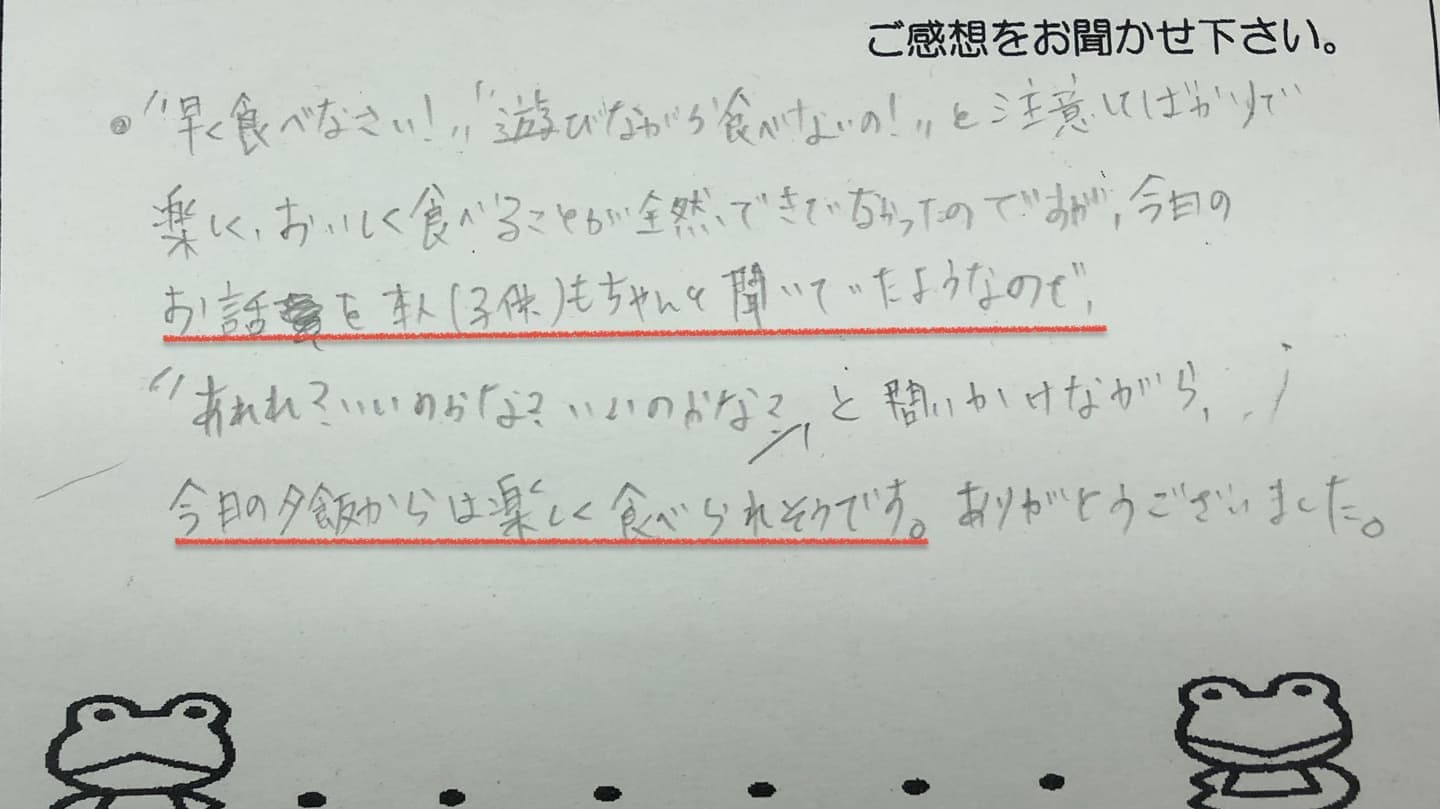 ご感想をお聞かせ下さい。
"早く食べなさい!" "遊びながら食べないの!" と注意してばかりで
楽しく、おいしく食べることが全然、できでなかったのですが、今日の
お話を本人(子供)もちゃんと聞いていたようなので、
"あれれ?いいのかな?いいのかな?" と問いかけながら、
今日の夕飯からは楽しく食べられそうです。ありがとうございました。